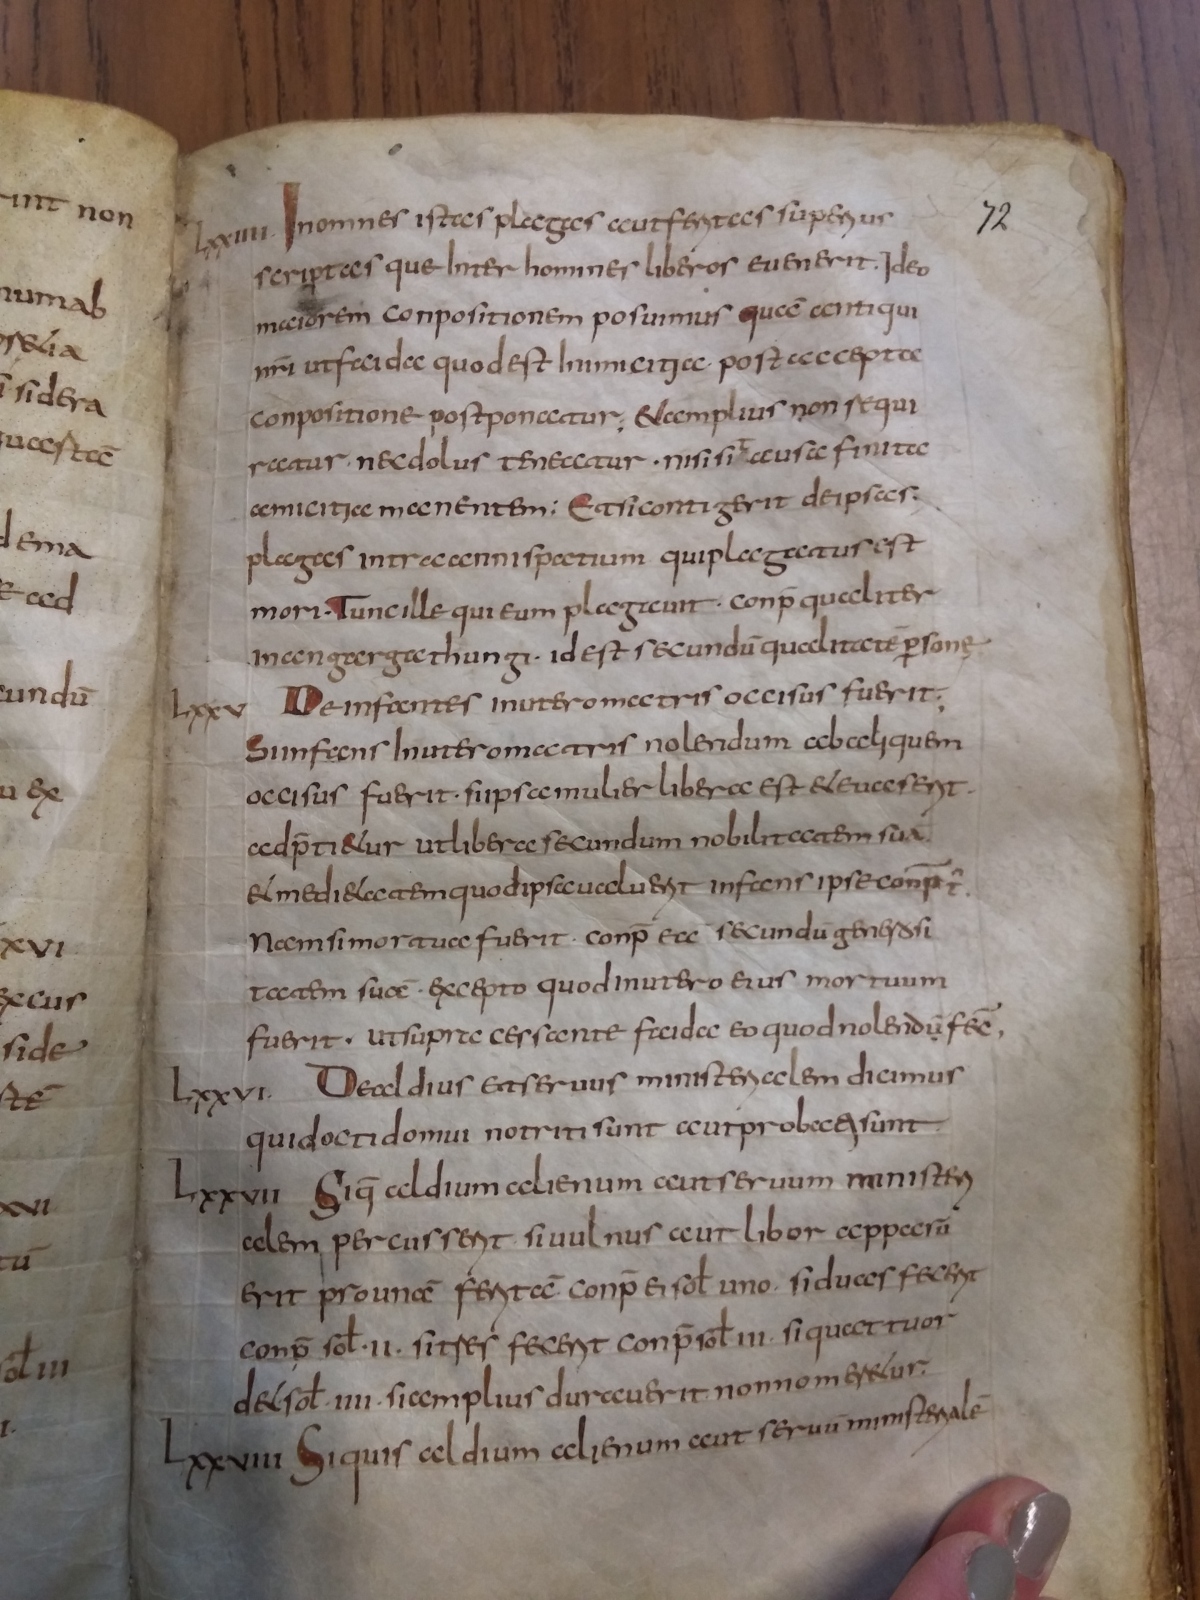 rint non
numab
oselia
i sidera
questā
dema
& ad
cundū
u ex
xvi
excus
side
stē
xxvi
tū
sol iii
72
Lxxiiii. Inomnes istas plagas autferitas superius
scriptas que Inter homines liberos evenerit. Ideo
maiorem Conpositionem posuimus quā antiqui
nr̄i utfaida quod est Inimicitia. post accepta
conpositione postponatur; &amplius non requi
ratur. nec dolus teneatur. nisi sit causa finita
amicitia manentem; Etsicontigerit deipsas.
plagas intra anni spatium quiplagatus est
mori. Tunc ille qui eum plagavit. conp̄ qualiter
inangargathungi. id est secundū qualitatē p̄sonę
Lxxv De infantes inutero matris occisus fuerit;
Siinfans Inutero matris nolendum abaliquem
occisus fuerit. siipsa mulier libera est &evaserit.
adp̄ti&ur utlibera secundum nobilitatem suā.
&medi&atem quodipsa valuerit infans ipse conp̄t̄.
Nam simortua fuerit. conp̄ eā secundū generosi
tatem suā. excepto quod inutero eius mortuum
fuerit. utsupra cessante faida eo quod nolendū fec̄.
Lxxvi. De aldius etservus ministerialem dicimus
qui docti domui notriti sunt autprobati sunt
Lxxvii Siq̄ aldium alienum autservum minister
ialem percusserit. sivulnus aut libor apparū
erit pro unā feritā conp̄ ei sol uno. si duas fecerit
conp̄ sol. ii. sitres fecerit conp̄ sol iii. si quattuor
d& sol. iiii. siamplius duraverit nonnomer&ur.
Lxxviii Siquis aldium alienum aut servū ministerialē